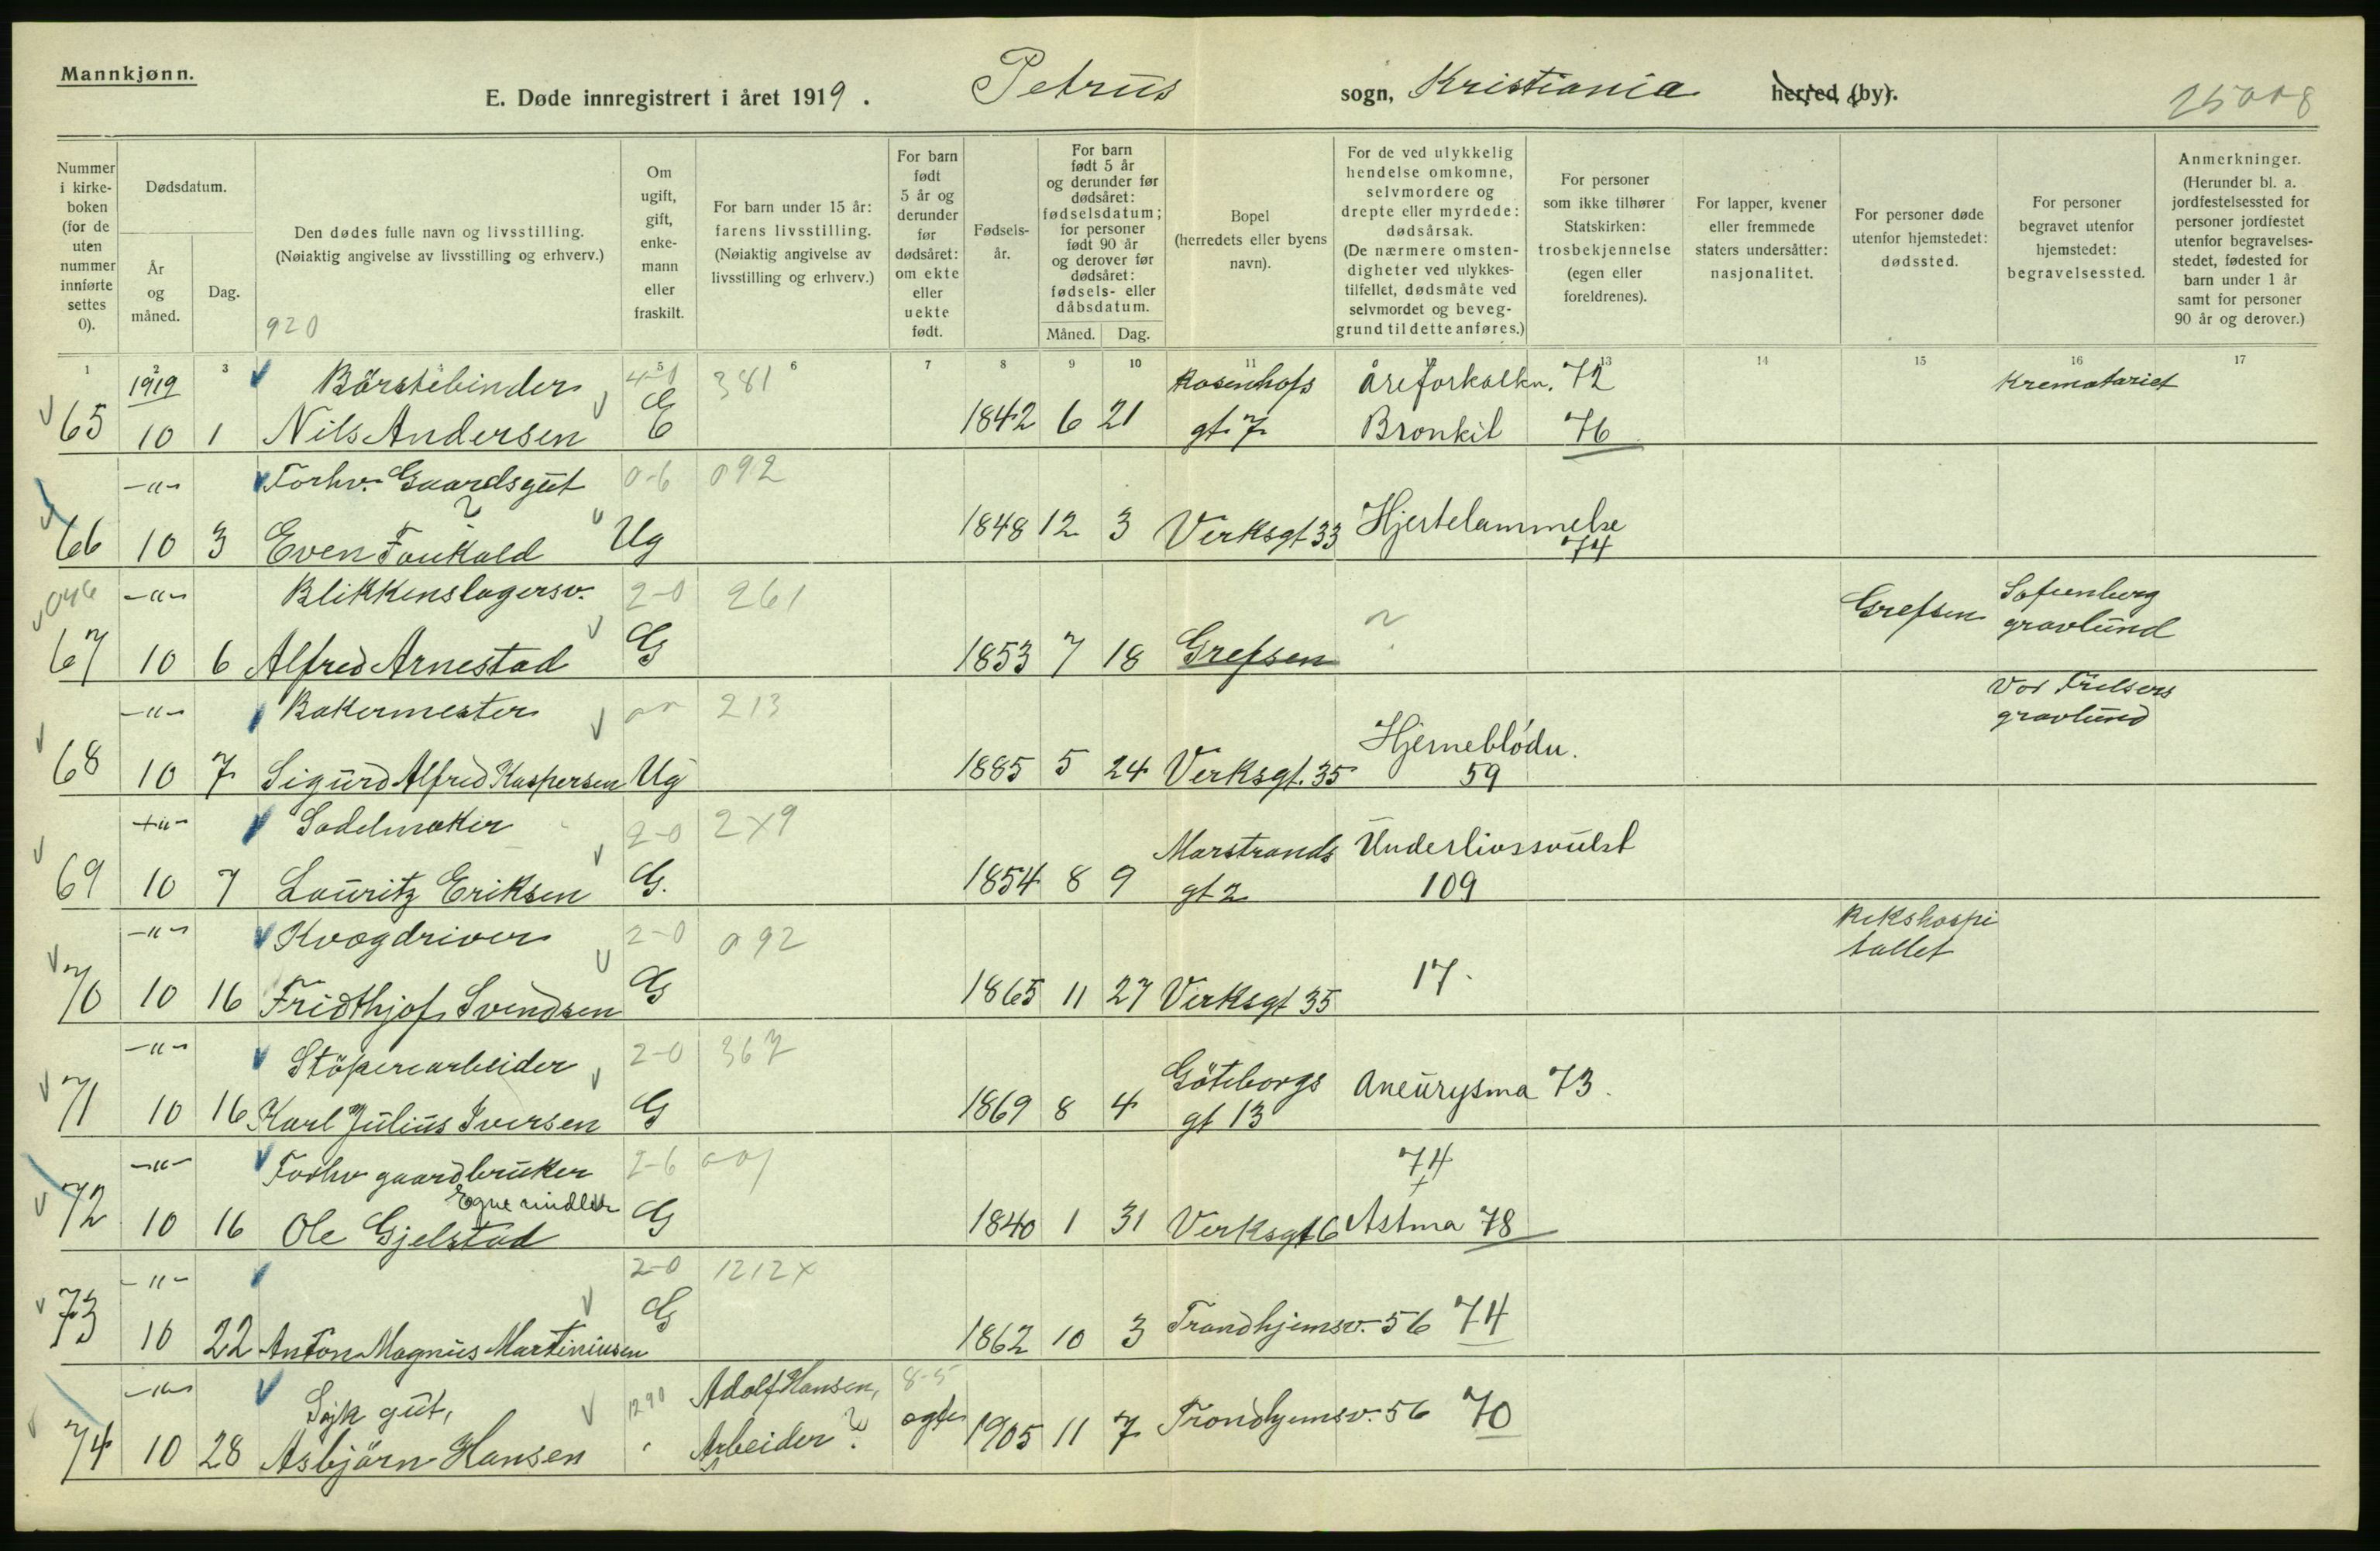 Mannkjønn.
E. Døde innregistrert i året 1919. Petrus sogn, Kristiania herred (by).
Nummer i kirkeboken (for de uten nummer innførte settes 0).
Dødsdatum.
År og måned.
Dag.
Den dødes fulle navn og livsstilling.
(Nøiaktig angivelse av livsstilling og erhverv.)
920
Om ugift, gift, enkemann eller fraskilt.
For barn under 15 år: farens livsstilling.
(Nøiaktig angivelse av livsstilling og erhverv.)
For barn født 5 år og derunder før dødsåret: om ekte eller uekte født.
Fødselsår.
For barn født 5 år og derunder før dødsåret: fødselsdatum; for personer født 90 år og derover før dødsåret: fødsels- eller dåbsdatum.
Måned. Dag.
Bopel (herredets eller byens navn).
For de ved ulykkelig hendelse omkomne, selvmordere og drepte eller myrdede: dødsårsak.
(De nærmere omstendigheter ved ulykkestilfellet, dødsmåte ved selvmordet og beveggrund til dette anføres.)
For personer som ikke tilhører Statskirken: trosbekjennelse (egen eller foreldrenes).
For lapper, kvener eller fremmede staters undersåtter: nasjonalitet.
For personer døde utenfor hjemstedet: dødssted.
For personer begravet utenfor hjemstedet: begravelsessted.
Anmerkninger.
(Herunder bl. a. jordfestelsessted for personer jordfestet utenfor begravelsesstedet, fødested for barn under 1 år samt for personer 90 år og derover.)
1 2 3 5 6 7 8 9 10 11 13 14 15 16 17
1919 Börstebinder 4-0 381 Rosenhofs åreforkalkn. 72 Krematoriet
65 10 1 Nils Andersen E 1842 6 21 gt. 7 Bronkit 76
-"- Forhv. Gaardsgut 0-6 092
66 10 3 Even Ug 1848 12 3 Verksgt 33 Hjertelammelse
74
-"- Blikkenslagersv. 2-0 261 Grefsen Sofienberg gravlund
67 10 6 Alfred Arnestad G 1853 7 18 Grefsen
-"- Bakermester 213 Vor Frelsers gravlund
68 10 7 Sigurd Alfred Kaspersen Ug 1885 5 24 Verksgt. 35 Hjerneblödn.
59
-"- Sadelmaker 2-0 2x9 Marstrands Underlivssvulst
69 10 7 Lauritz Eriksen G. 1854 8 9 gt 2 109
-"- Kvægdriver 2-0 092 Rikshospitallet
70 10 16 Fridthjof Svendsen G 1865 11 27 Verksgt 35 17.
-"- Stöperiarbeider 2-0 367 Göteborgs Aneurysma 73.
71 10 16 Karl Julius Iversen G 1869 8 4 gt 13
-"- Forhv gaardbruker 2-6 001 74
Egne midler
72 10 16 Ole Gjelstad G 1840 1 31 Verksgt 6 Astma 78
-"- 2-0 1212x
73 10 22 Anton Magnus Martiniusen G 1862 10 3 Trondhjemsv. 56 74
-"- Sjk gut, 1290 Adolf Hansen, 8-5
74 10 28 Asbjörn Hansen Arbeider? 1905 11 7 Trondhjemsv. 56 70